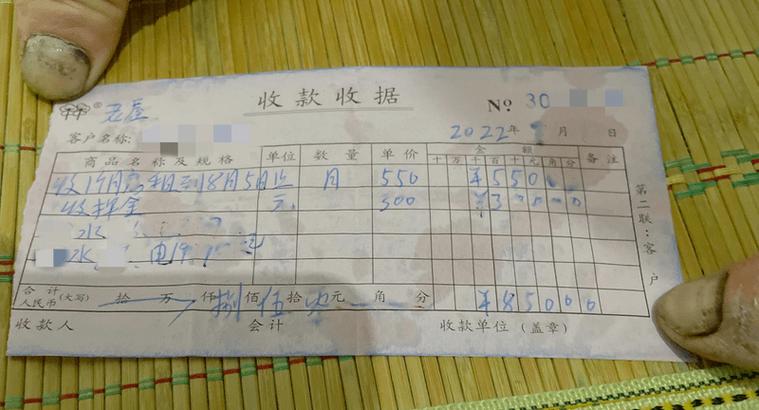 收款收据 № 30
客户名称: 2022年 月 日
商品名称及规格 单位 数量 单价 金额 备注
十万千百十元角分
收1个月房租到8月5日止 月 550 ¥550
收押金 元 300 ¥30000
水
水 电
合计人民币(大写) 拾 万 仟捌佰伍拾 元 角 分 ¥85000
收款人 会计 收款单位(盖章)
第二联:客户